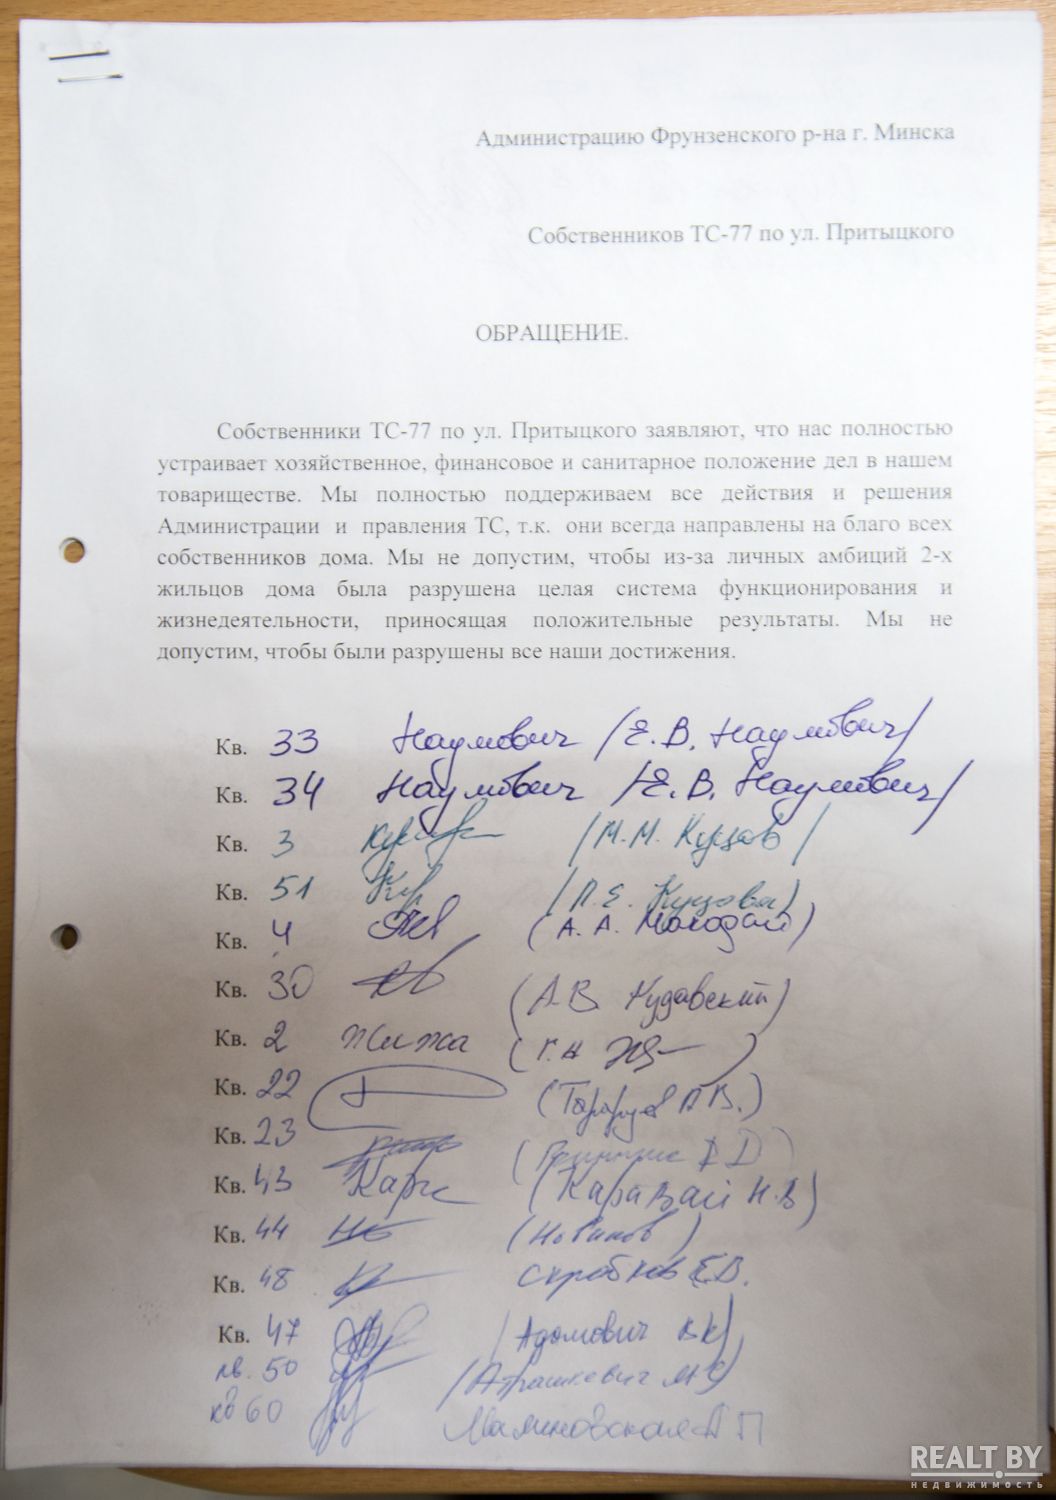 Администрацию Фрунзенского р-на г. Минска
Собственников ТС-77 по ул. Притыцкого
ОБРАЩЕНИЕ.
Собственники ТС-77 по ул. Притыцкого заявляют, что нас полностью
устраивает хозяйственное, финансовое и санитарное положение дел в нашем
товариществе. Мы полностью поддерживаем все действия и решения
Администрации и правления ТС, т.к. они всегда направлены на благо всех
собственников дома. Мы не допустим, чтобы из-за личных амбиций 2-х
жильцов дома была разрушена целая система функционирования и
жизнедеятельности, приносящая положительные результаты. Мы не
допустим, чтобы были разрушены все наши достижения.
Кв. 33 Наумович /Е.В. Наумович/
Кв. 34 Наумович /Е.В. Наумович/
Кв. 3 /М.М. Купцов/
Кв. 51 (П.Е. Купцова)
Кв. 4 (А.А.
Кв. 30 (А.В. Кудавский)
Кв. 2 Жижа (Г.Н
Кв. 22
Кв. 23
Кв. 43 (Каравай Н.В)
Кв. 44 (Новиков)
Кв. 48 Скробков Е.В.
Кв. 47 /Адамович ВК/
кв. 50
кв 60 Малиновская П
REALT.BY
НЕДВИЖИМОСТЬ